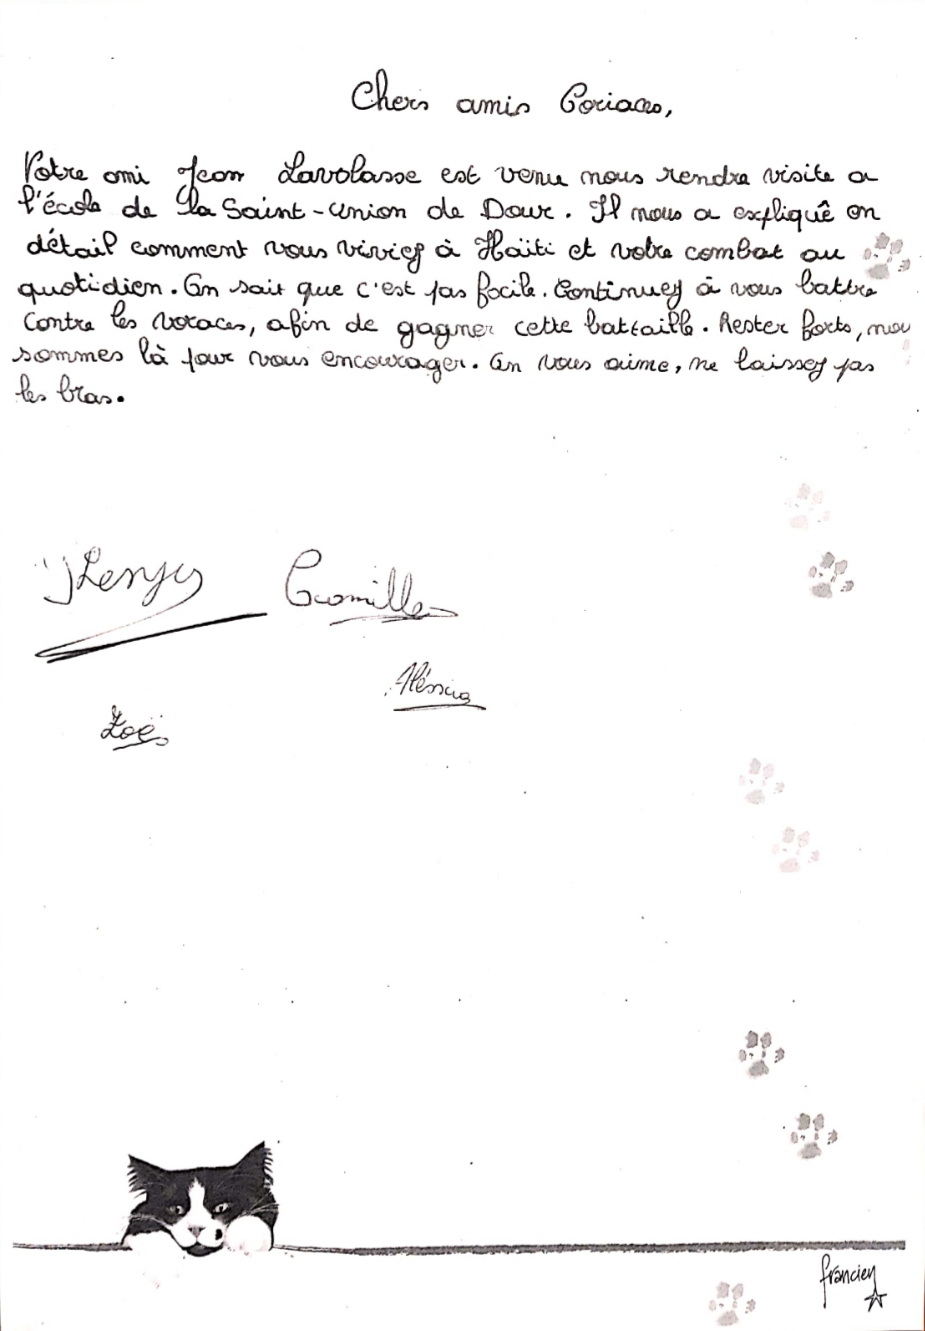 Chers amis Coriaces,
Votre ami Jean Lavolasse est venu nous rendre visite a
l'école de la Saint-Union de Dour. Il nous a expliqué en
détail comment vous viviez à Haïti et votre combat au
quotidien. On sait que c'est pas facile. Continuez à vous battre
contre les voraces, afin de gagner cette battaille. Rester forts, nou
sommes là pour vous encourager. On vous aime, ne laissez pas
les bras.
Camille
Aléssia
Zoë
francien